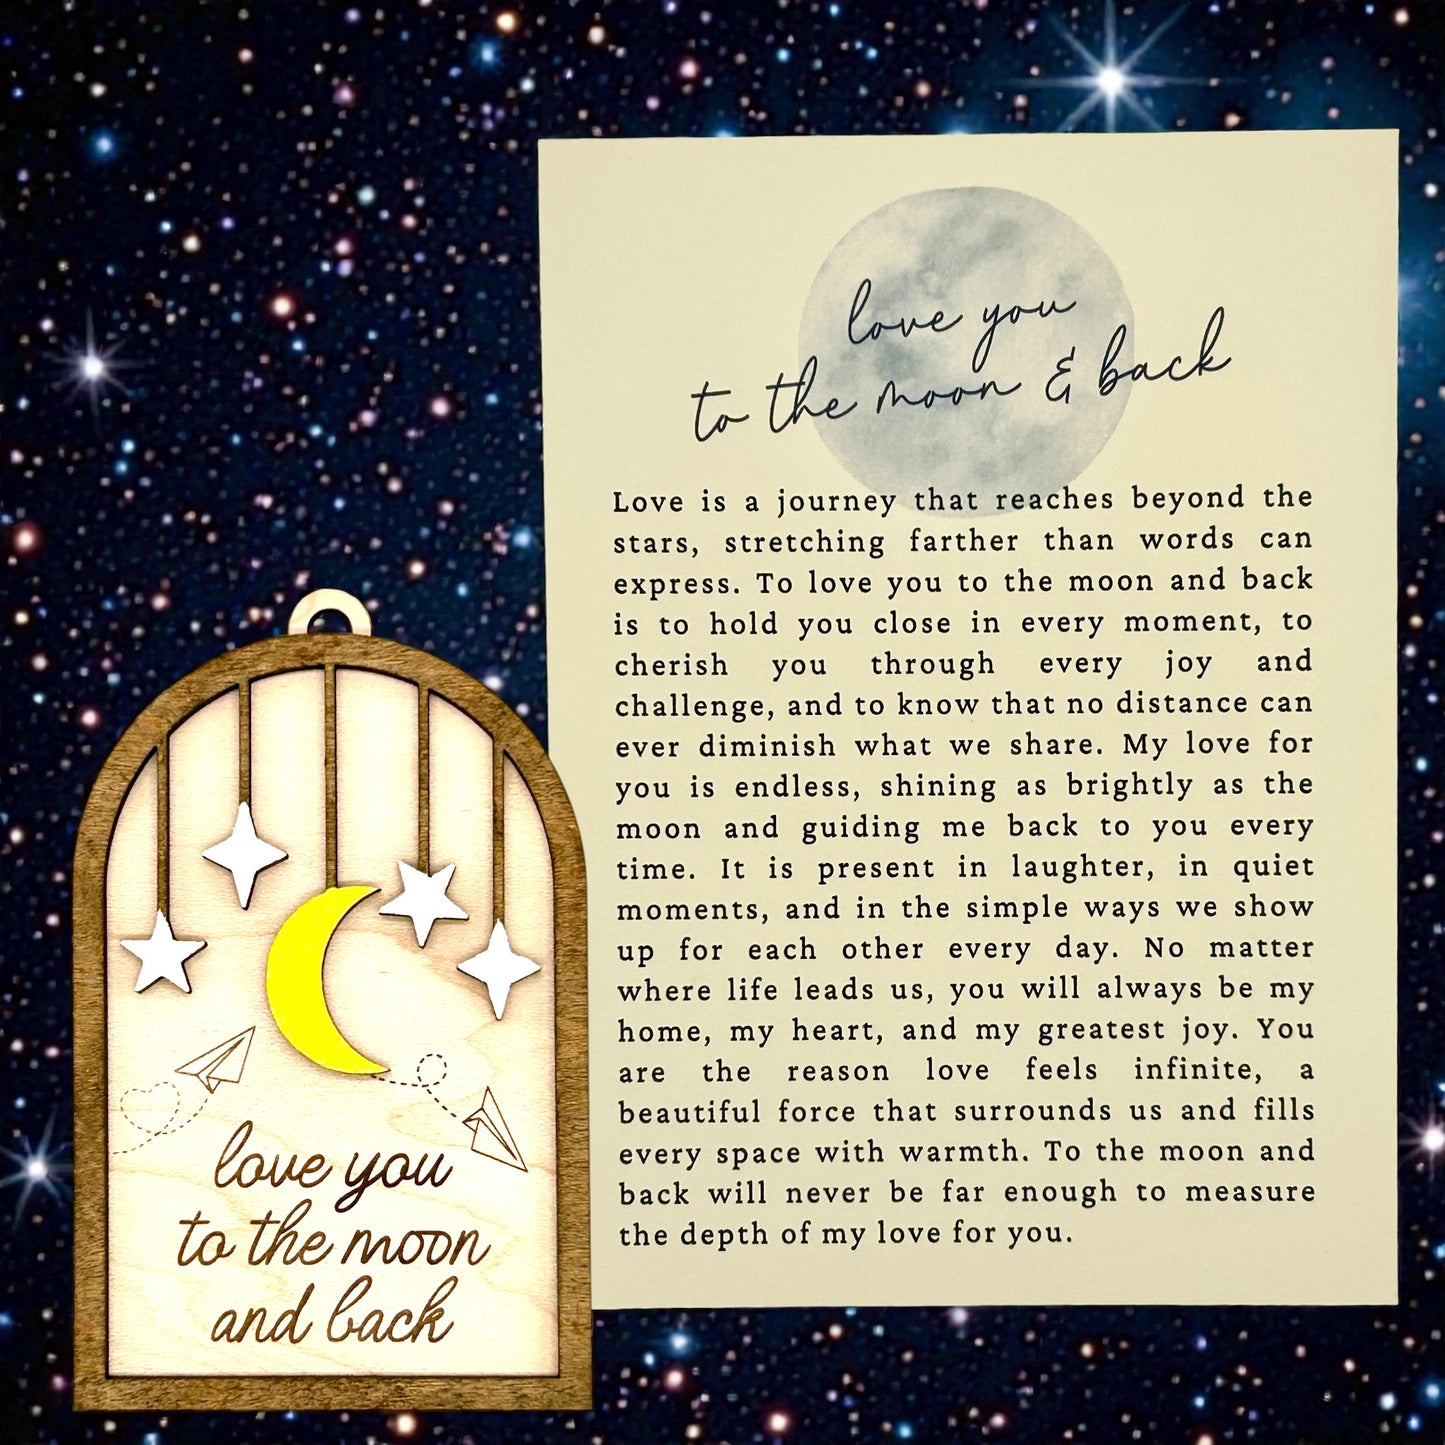 love you
to the moon & back
Love is a journey that reaches beyond the
stars, stretching farther than words can
express. To love you to the moon and back
is to hold you close in every moment, to
cherish you through every joy and
challenge, and to know that no distance can
ever diminish what we share. My love for
you is endless, shining as brightly as the
moon and guiding me back to you every
time. It is present in laughter, in quiet
moments, and in the simple ways we show
up for each other every day. No matter
where life leads us, you will always be my
home, my heart, and my greatest joy. You
are the reason love feels infinite, a
beautiful force that surrounds us and fills
every space with warmth. To the moon and
back will never be far enough to measure
the depth of my love for you.
love you
to the moon
and back